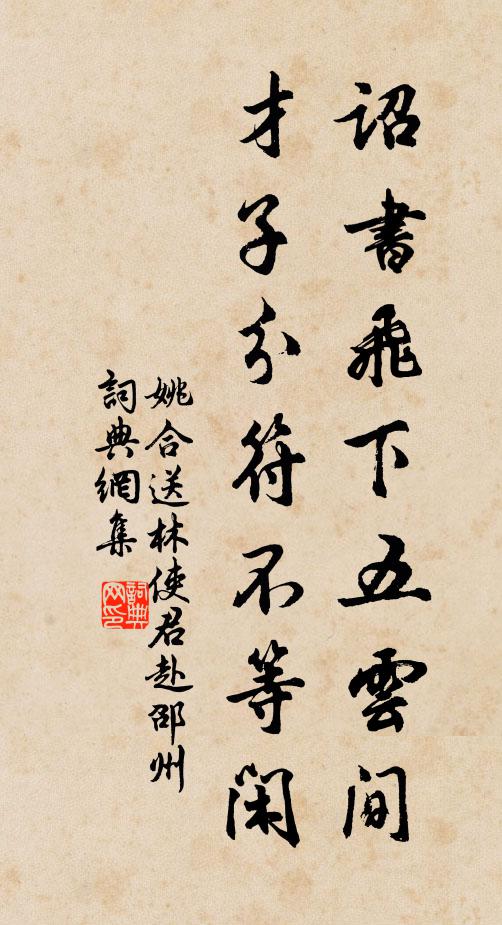 詔書飛下五雲間
才子分符不等閑
姚合送林使君赴邵州
詞典網集
詞典网印